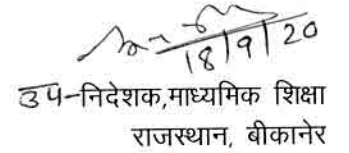 18/9/20
उप-निदेशक,माध्यमिक शिक्षा
राजस्थान, बीकानेर